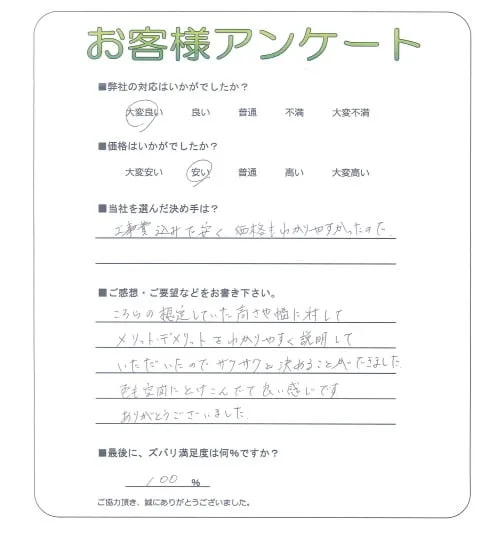 お客様アンケート
■弊社の対応はいかがでしたか？
大変良い 良い 普通 不満 大変不満
■価格はいかがでしたか？
大変安い 安い 普通 高い 大変高い
■当社を選んだ決め手は？
工事費込みで安く 価格もわかりやすかったので
■ご感想・ご要望などをお書き下さい。
こちらの想定していた高さや幅に対して
メリット・デメリットをわかりやすく説明して
いただいたのでサクサクと決めることができました
色も空間にとけこんでて良い感じです
ありがとうございました
■最後に、ズバリ満足度は何％ですか？
100 ％
ご協力頂き、誠にありがとうございました。